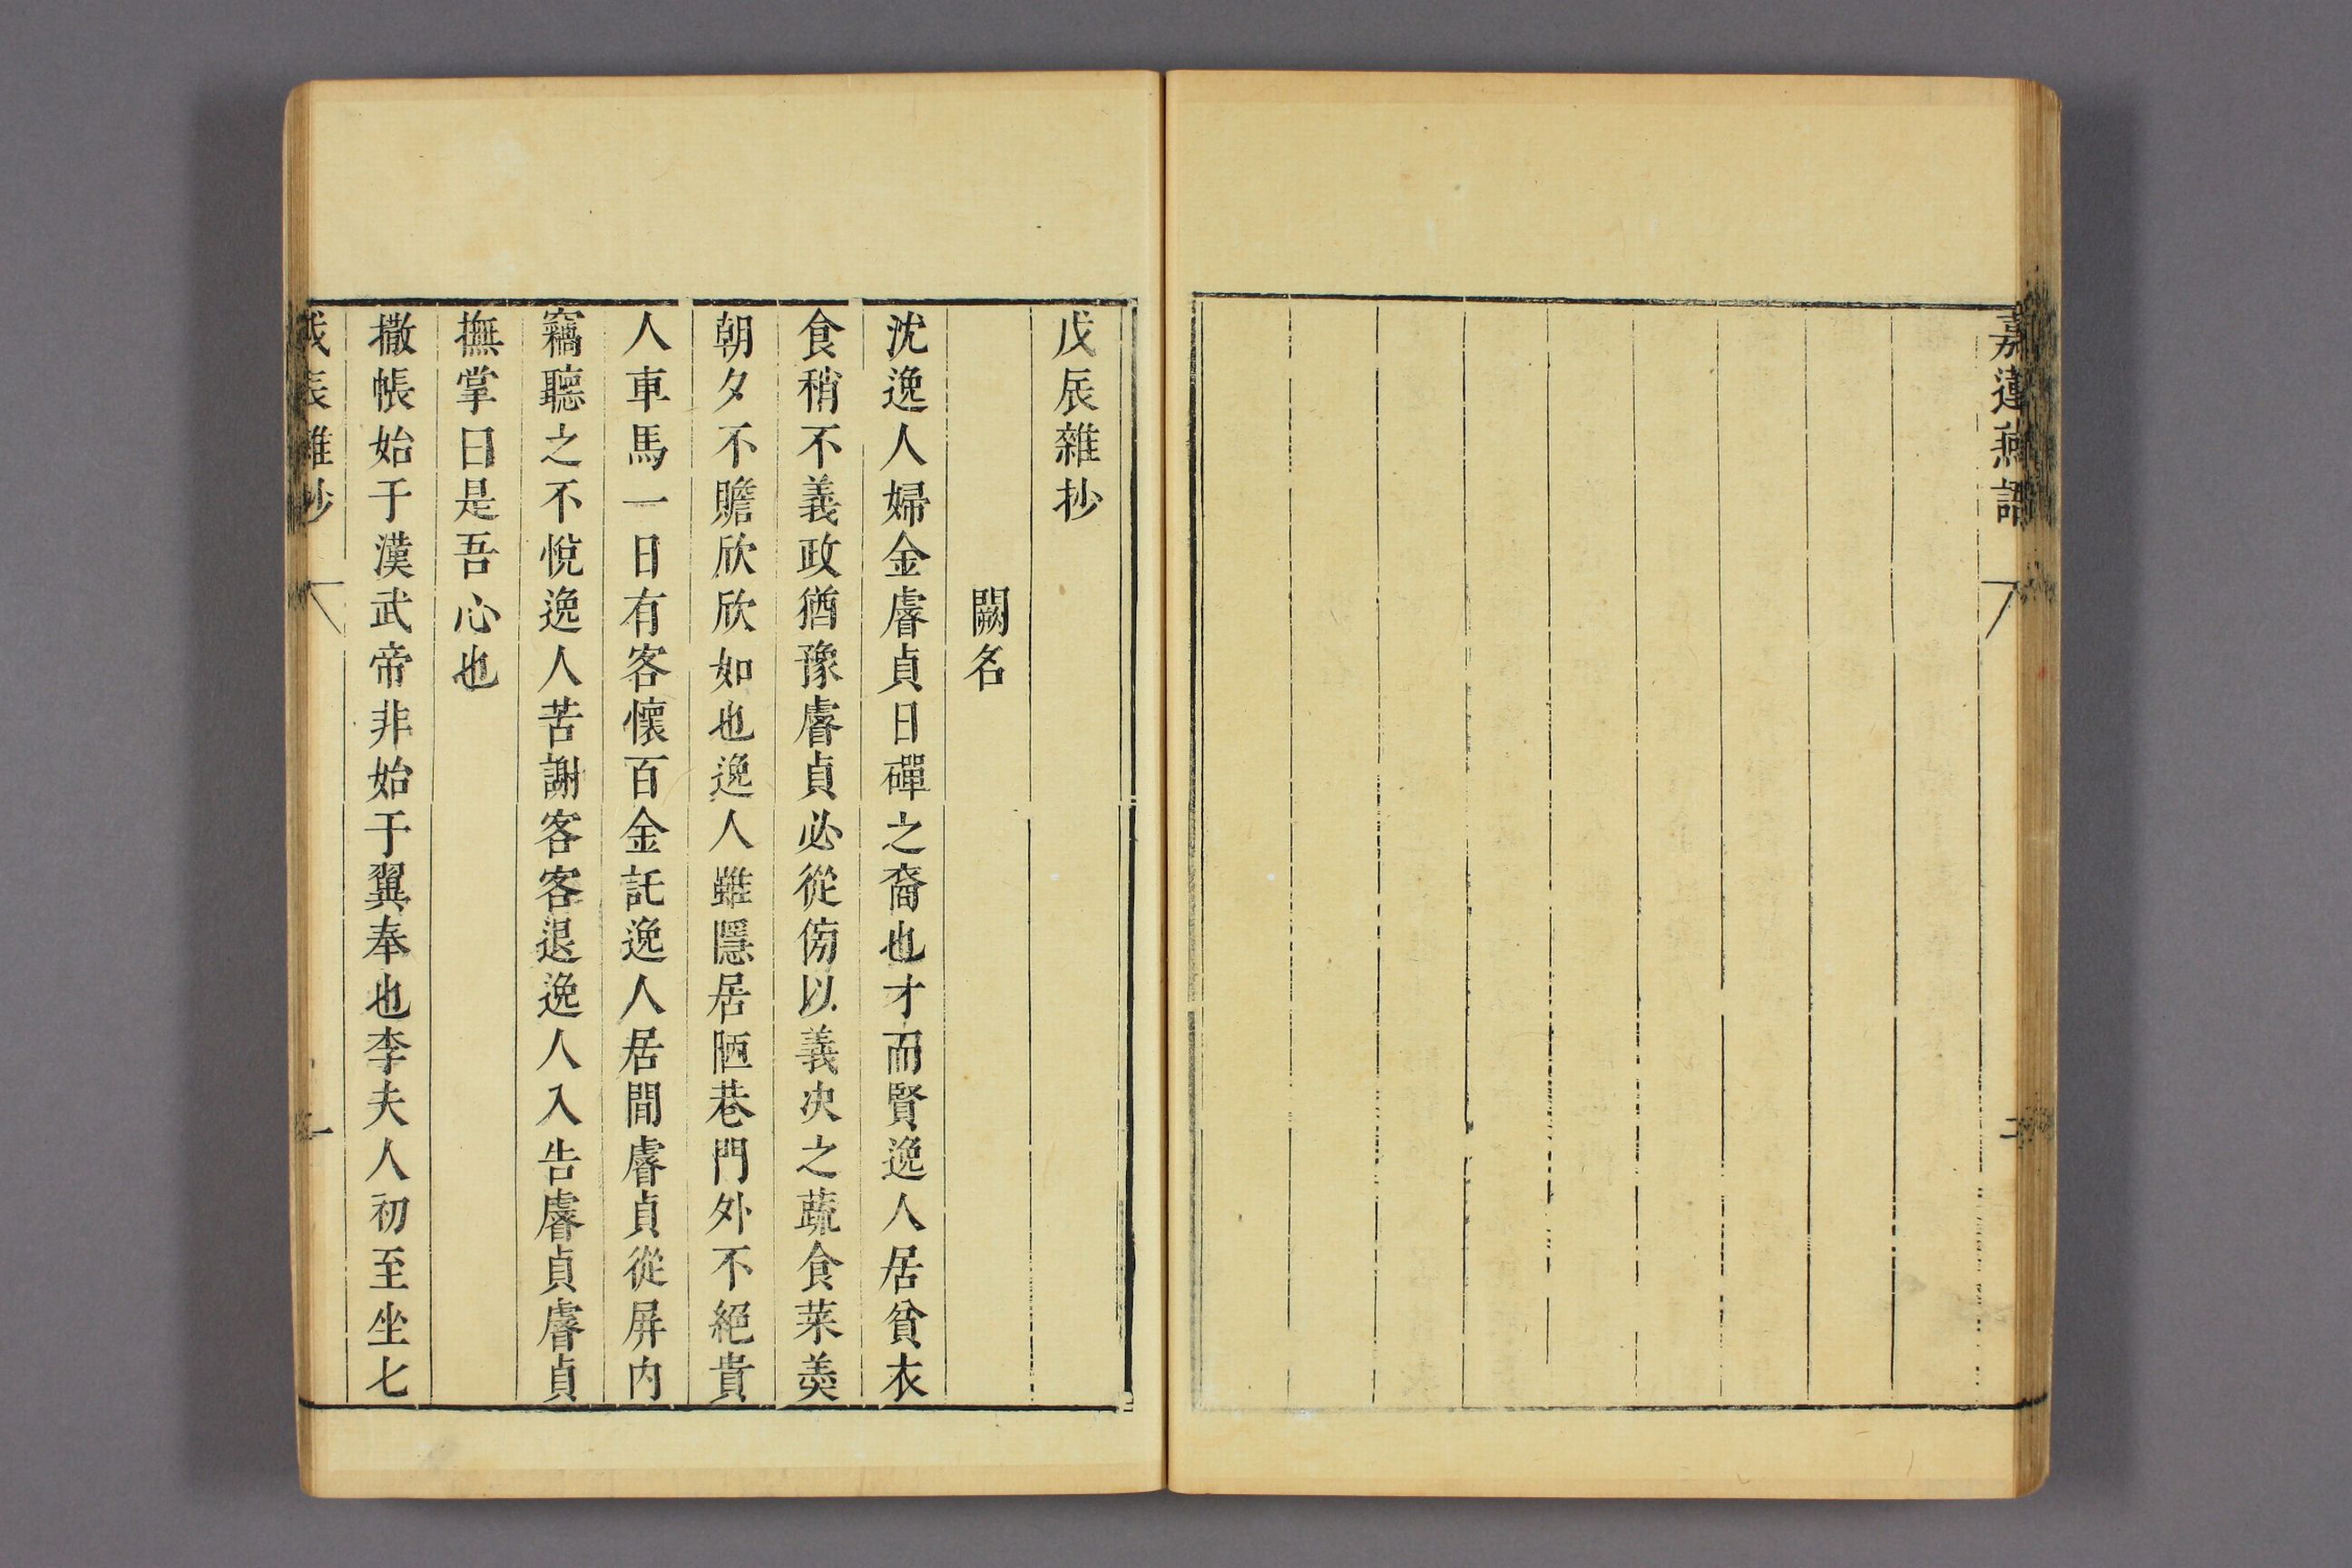 嘉蓮燕語
二
戊辰雜抄
闕名
沈逸人婦金睿貞日磾之裔也才而賢逸人居貧衣
食稍不義政猶豫睿貞必從傍以義决之蔬食菜羮
朝夕不贍欣欣如也逸人雖隱居陋巷門外不絕貴
人車馬一日有客懷百金託逸人居間睿貞從屏内
竊聽之不悅逸人苦謝客客退逸人入告睿貞睿貞
撫掌曰是吾心也
撒帳始于漢武帝非始于翼奉也李夫人初至坐七
戊辰雜抄
一